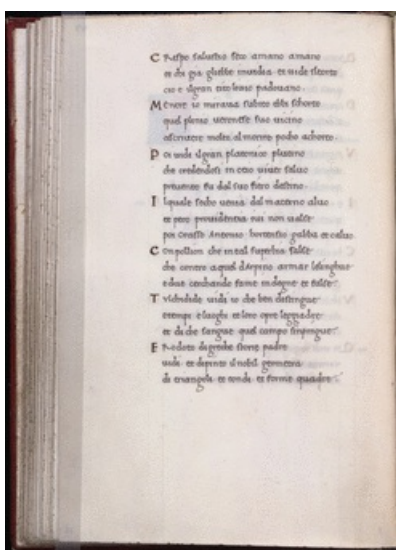 C Rispo salustio seco amano amano
et chi gia glhebbe invidia et vide ilcorto
cio e ilgran tito livio padovano.
M Entre io mirava subito ebbi schorto
quel plinio veronese suo vicino
ascrivere molto al morire pocho achorto
P Oi vide ilgran platonico plutino
che credendosi in otio viver salvo
prevento fu dal suo fiero destino
I lquale secho venia dal materno alvo
et pero providentia ivi non valse
poi Crasso Antonio hortensio gabba et calvo
C on pollion che in tal superbia salse
che contro aquel darpino armar lelinghue
e due cerchando fame indegne et false
T Uchidide vidi io che ben distingue
e tempi e luoghi et loro opre leggiadre
et di che sangue qual campo simpingue
E Rodoto digreche storie padre
vidi et depinto il nobil geometra
di triangoli et tondi et forme quadre